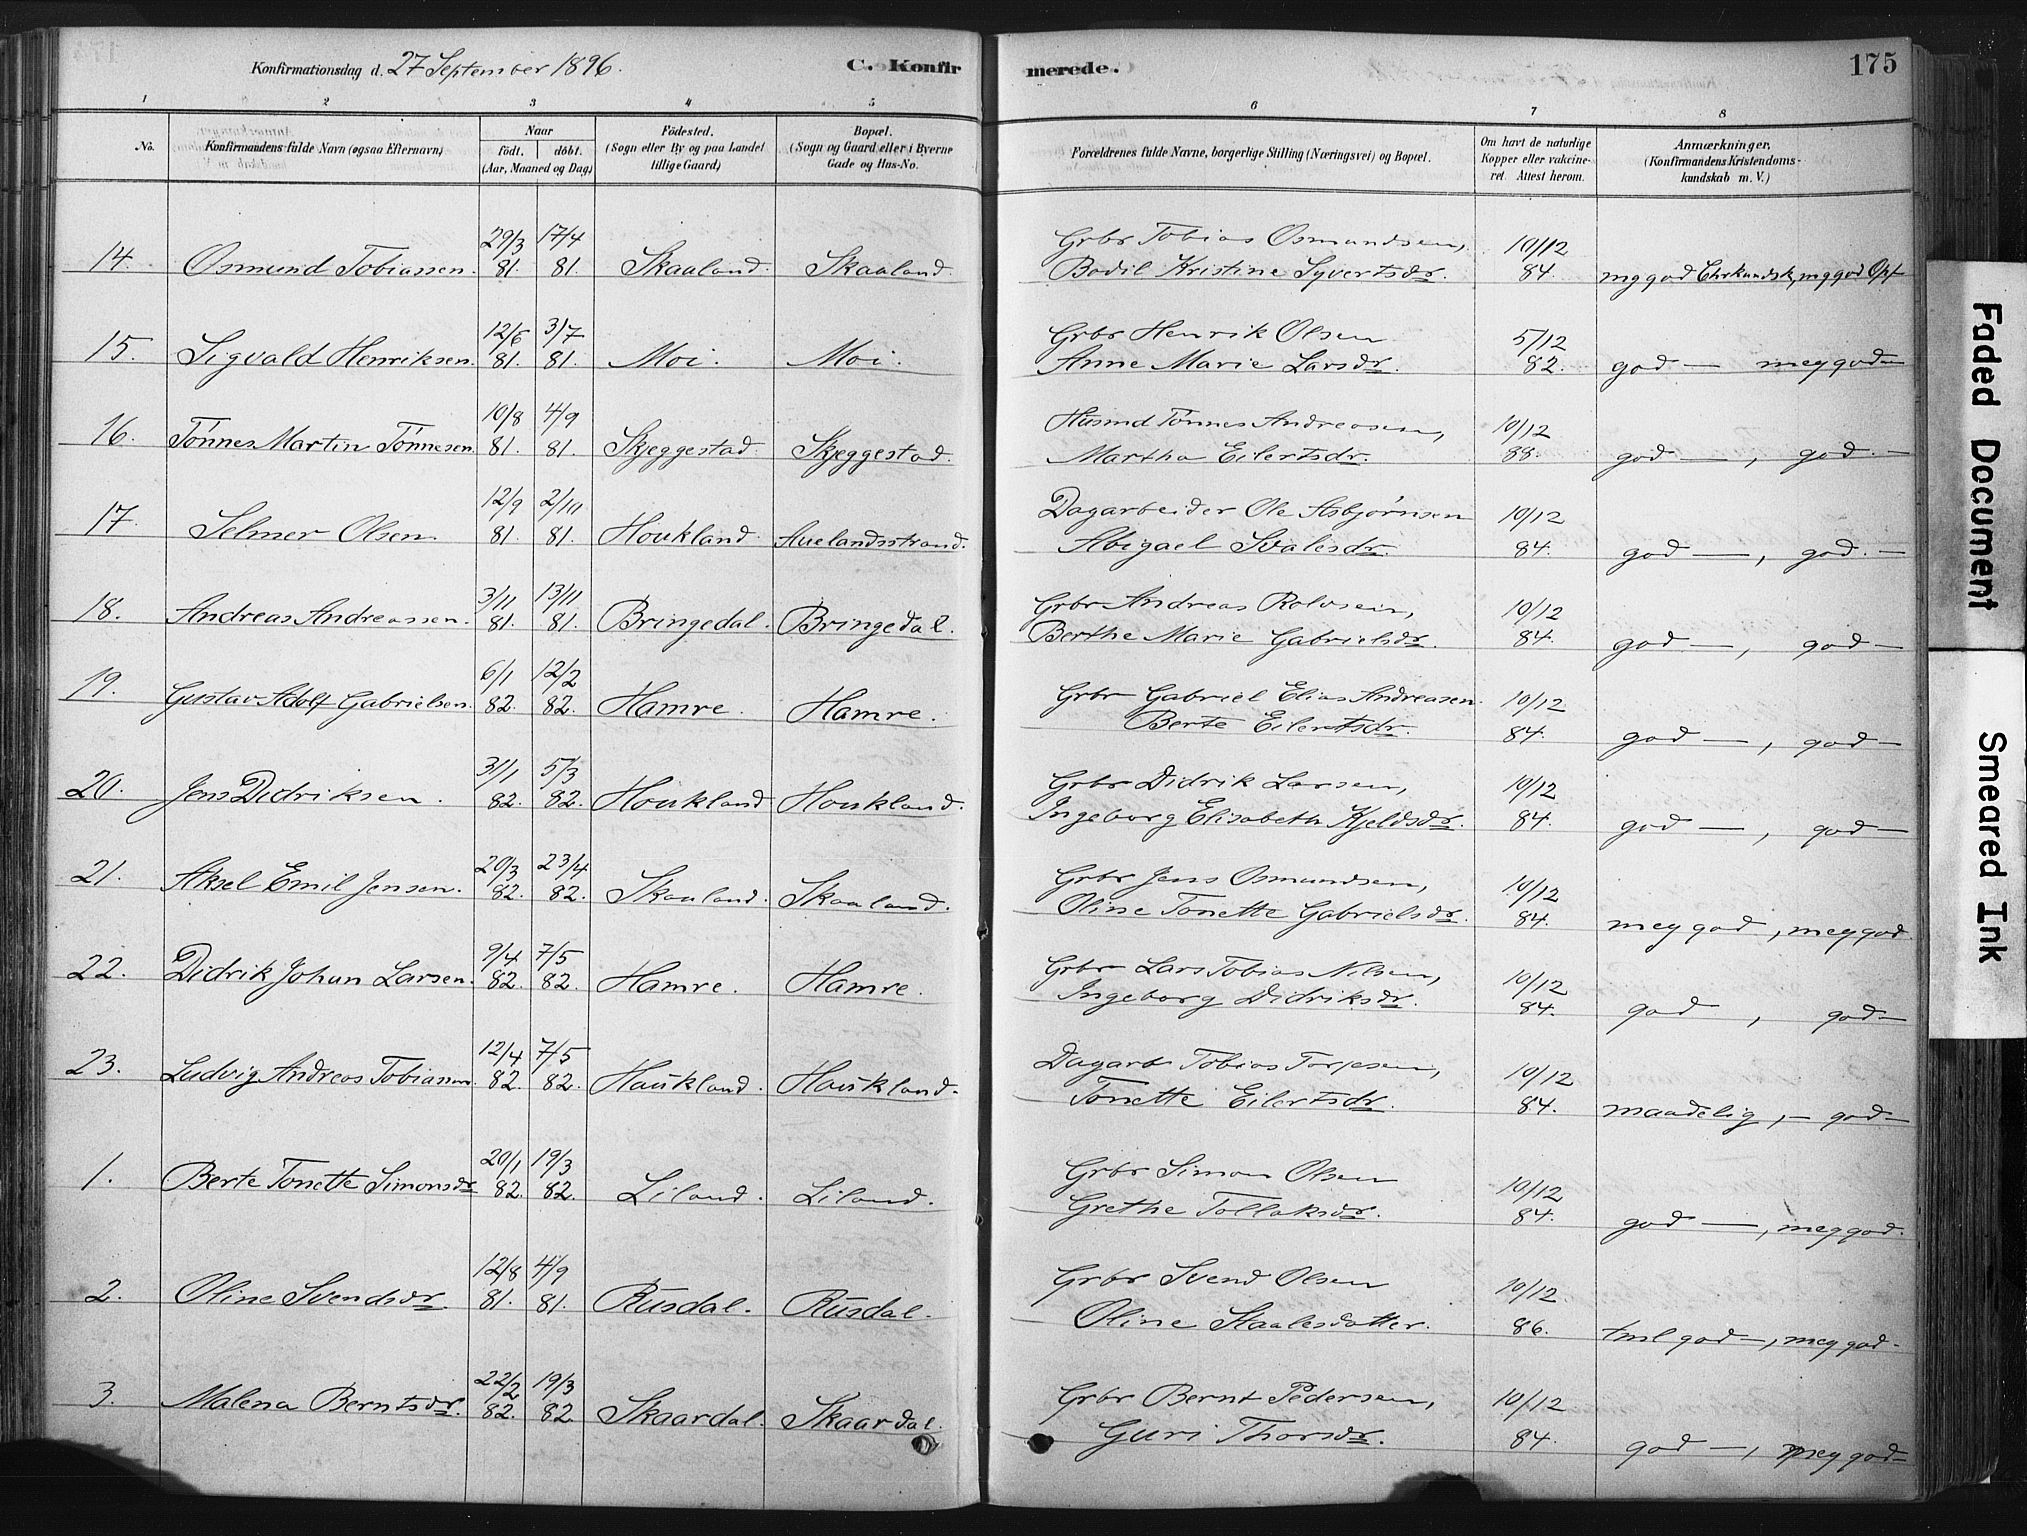 Konfirmationsdag d. 27 September 1896.
C. Konfirmerede.
175
1 2 3 4 5 6 7 8
No.
Konfirmandens fulde Navn (ogsaa Efternavn)
Naar
født. døbt.
(Aar, Maaned og Dag)
Fødested.
(Sogn eller By og paa Landet
tillige Gaard)
Bopæl.
(Sogn og Gaard eller i Byerne
Gade og Hus-No.
Forældrenes fulde Navne, borgerlige Stilling (Næringsvei) og Bopæl.
Om havt de naturlige
Kopper eller vakcine-
ret. Attest herom.
Anmærkninger,
(Konfirmandens Kristendoms-
kundskab m. V.)
29/3 17/4 Grbr Tobias Osmundsen, 10/12
14. Osmund Tobiassen. 81. 81. Skaaland. Skaaland. Bodil Kristine Syvertsdr. 84. mg god Chrkundsk, mg god Opf
12/6 3/7 Grbr Henrik Olsen 5/12
15. Sigvald Henriksen. 81. 81. Moi. Moi. Anne Marie Larsdr. 82. god — meg god —
10/8 4/9 Husmd Tønnes Andreasen, 10/12
16. Tønnes Martin Tønnesen 81. 81. Skjeggestad. Skjeggestad. Martha Eilertsdr. 88. god —, god —
12/9 2/10 Dagarbeider Ole Asbjørnsen 10/12
17. Selmer Olsen. 81. 81. Houkland. Auelandsstrand. Abigael Svalesdr. 84. god —, god —
3/11 13/11 Grbr Andreas Rolvsen, 10/12
18. Andreas Andreassen. 81. 81. Bringedal. Bringedal. Berthe Marie Gabrielsdr. 84. god —, god —
6/1 12/2 Grbr Gabriel Elias Andreasen 10/12
19. Gustav Adolf Gabrielsen. 82. 82. Hamre. Hamre. Berte Eilertsdr. 84. god —, god —
31/1 5/3 Grbr Didrik Larsen, 10/12
20. Jens Didriksen. 82. 82. Houkland Houkland. Ingeborg Elisabeth Kjeldsdr. 84. god —, god —
20/3 23/4 Grbr Jens Osmundsen, 10/12
21. Aksel Emil Jensen. 82. 82. Skaaland. Skaaland. Oline Tonette Gabrielsdr. 84. meg god, meg god
9/4 7/5 Grbr Lars Tobias Nilsen, 10/12
22. Didrik Johan Larsen. 82. 82. Hamre. Hamre. Ingeborg Didriksdr. 84. god, god —
12/4 7/5 Dagarb Tobias Torjesen, 10/12
23. Ludvig Andreas Tobiassen. 82. 82. Haukland. Haukland. Tonette Eilertsdr. 84. maadelig, — god —
20/1 19/3 Grbr Simon Olsen 10/12
1. Berte Tonette Simonsdr 82. 82. Liland. Liland. Grethe Tollaksdr. 84. god —, meg god.
12/8 4/9 Grbr Svend Olsen 10/12
2. Oline Svendsdr 81. 81. Rusdal. Rusdal. Oline Staalesdatter. 86. tml god —, meg god —
22/2 19/3 Grbr Bernt Pedersen, 10/12
3. Malena Berntsdr. 82. 82. Skaardal. Skaardal. Guri Thorsdr. 84. god —, meg god —
Faded Document
Smeared Ink